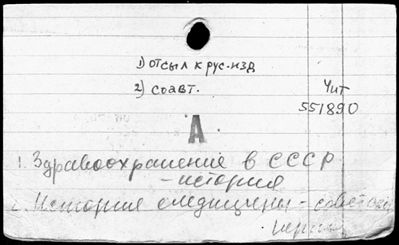 1) отсыл к рус. изд
2) соавт.
Чит
551890
А
1. Здравоохранение в СССР
- история
2. История медицины - советский
период